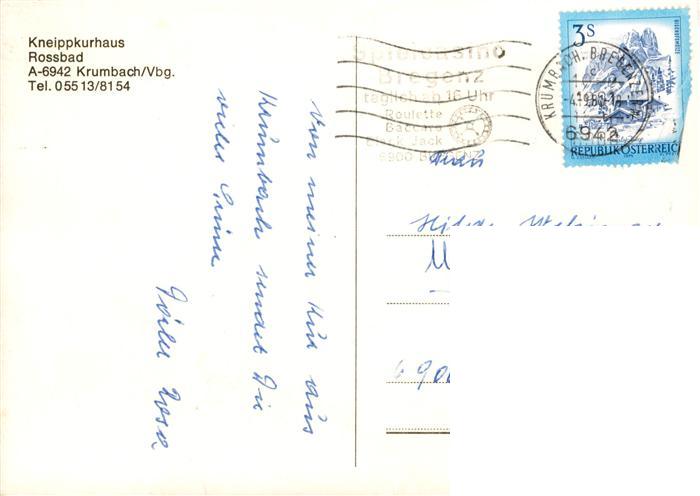 Kneippkurhaus
Rossbad
A-6942 Krumbach/Vbg.
Tel. 05513/8154
Von meiner Kur aus
Krumbach sendet Dir
viele Grüße
Deine Rosa
Spielcasino
Bregenz
täglich ab 16 Uhr
Roulette
Baccara
Black Jack
6900 BREGENZ
3 S
REPUBLIK ÖSTERREICH
KRUMBACH, BREGENZERW.
6942
Frau
M
690